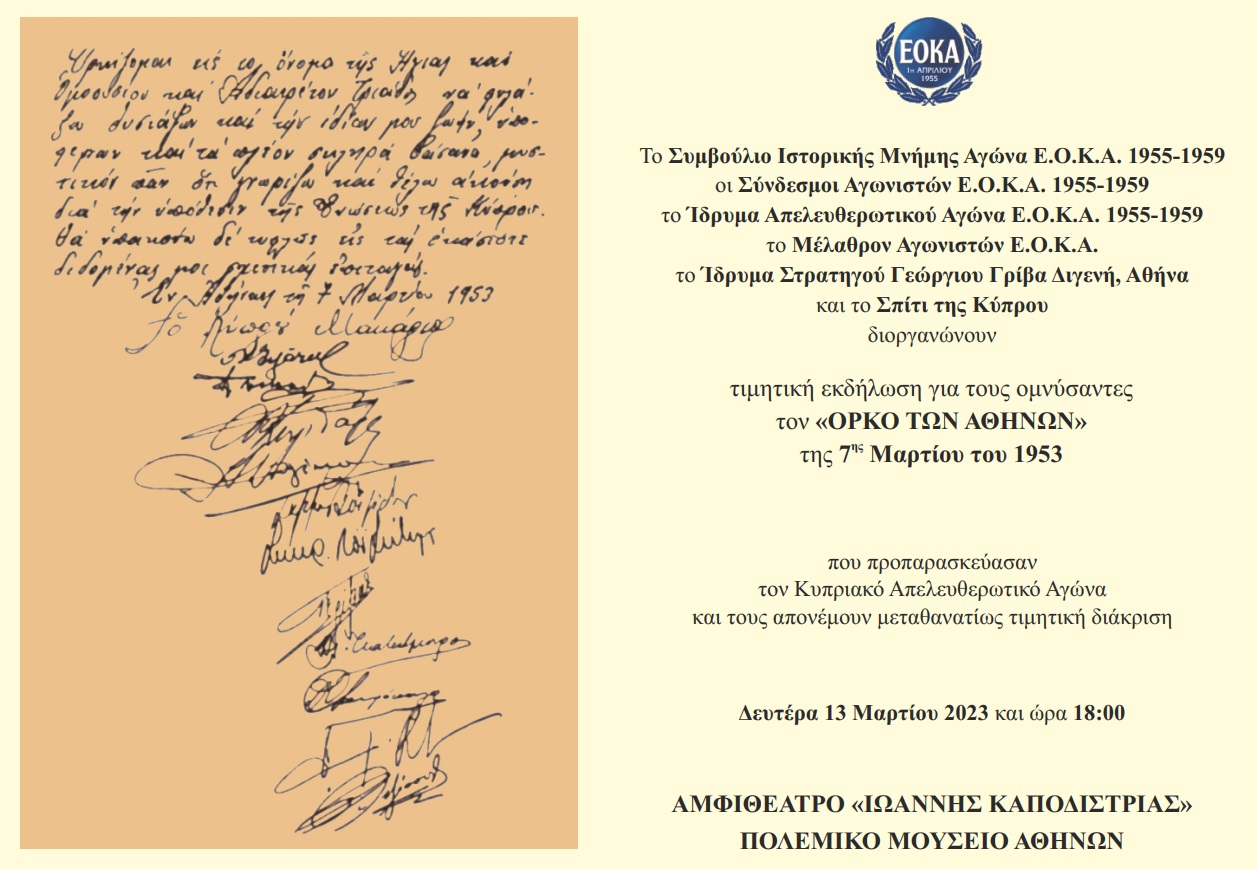 Ὁρκίζομαι εἰς τὸ ὄνομα τῆς Ἁγίας καὶ
Ὁμοουσίου καὶ Ἀδιαιρέτου Τριάδος νὰ φυλά-
ξω θυσιάζων καὶ τὴν ἰδίαν μου ζωήν, ὑπο-
φέρων καὶ τὰ πλέον σκληρά βάσανα, μυσ-
τικόν πᾶν ὅτι γνωρίζω καὶ θέλω ἀκούσῃ
διὰ τὴν ὑπόθεσιν τῆς Ἑνώσεως τῆς Κύπρου.
Θὰ ὑπακούω δὲ τυφλῶς εἰς τὰς ἑκάστοτε
διδομένας μοι σχετικάς ἐπιταγάς.
Ἐν Ἀθήναις τῇ 7 Μαρτίου 1953
Ὁ Κύπρου Μακάριος
ΕΟΚΑ
1η ΑΠΡΙΛΙΟΥ
1955
Το Συμβούλιο Ιστορικής Μνήμης Αγώνα Ε.Ο.Κ.Α. 1955-1959
οι Σύνδεσμοι Αγωνιστών Ε.Ο.Κ.Α. 1955-1959
το Ίδρυμα Απελευθερωτικού Αγώνα Ε.Ο.Κ.Α. 1955-1959
το Μέλαθρον Αγωνιστών Ε.Ο.Κ.Α.
το Ίδρυμα Στρατηγού Γεώργιου Γρίβα Διγενή, Αθήνα
και το Σπίτι της Κύπρου
διοργανώνουν
τιμητική εκδήλωση για τους ομνύσαντες
τον «ΟΡΚΟ ΤΩΝ ΑΘΗΝΩΝ»
της 7ης Μαρτίου του 1953
που προπαρασκεύασαν
τον Κυπριακό Απελευθερωτικό Αγώνα
και τους απονέμουν μεταθανατίως τιμητική διάκριση
Δευτέρα 13 Μαρτίου 2023 και ώρα 18:00
ΑΜΦΙΘΕΑΤΡΟ «ΙΩΑΝΝΗΣ ΚΑΠΟΔΙΣΤΡΙΑΣ»
ΠΟΛΕΜΙΚΟ ΜΟΥΣΕΙΟ ΑΘΗΝΩΝ